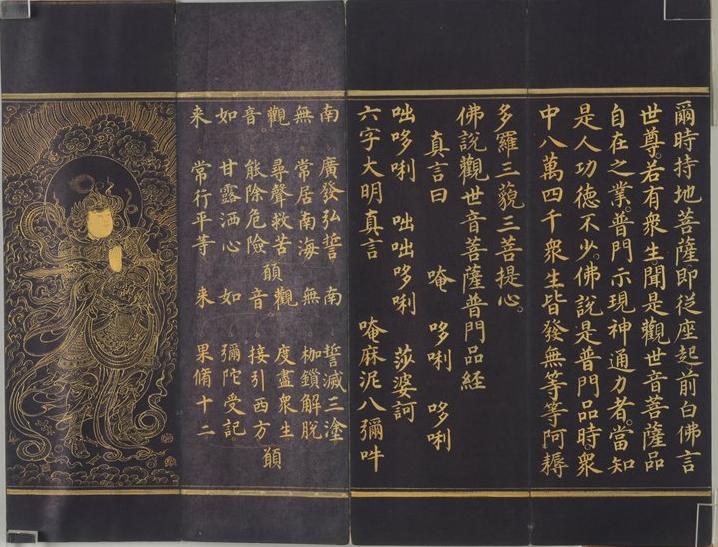 爾時持地菩薩即從座起前白佛言
世尊。若有衆生聞是觀世音菩薩品
自在之業。普門示現神通力者。當知
是人功德不少。佛說是普門品時衆
中八萬四千衆生皆發無等等阿耨
多羅三藐三菩提心。
佛說觀世音菩薩普門品經
真言曰 唵 哆唎 哆唎
咄哆唎 咄咄哆唎 莎婆訶
六字大明真言 唵麻泥八彌吽
南 廣發弘誓 南 誓滅三塗
無 常居南海 無 枷鎖解脫
觀 尋聲救苦 願 觀 度盡衆生 願
音 能除危險 音 接引西方
如 甘露洒心 如 彌陀受記
来 常行平等 来 果脩十二